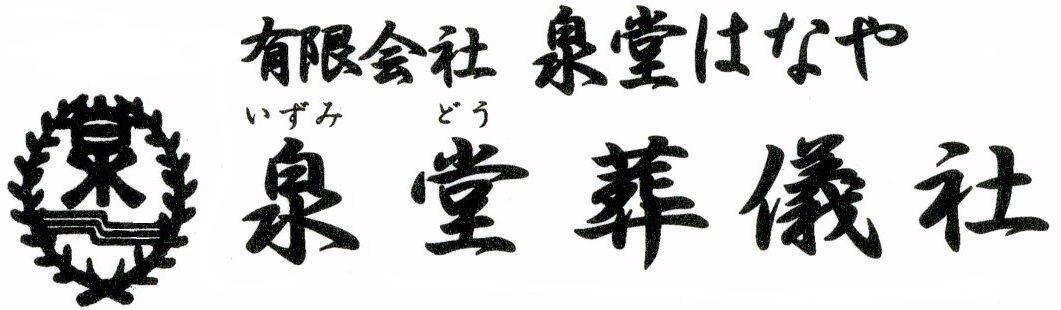 有限会社 泉堂はなや
いずみ どう
泉堂葬儀社
泉